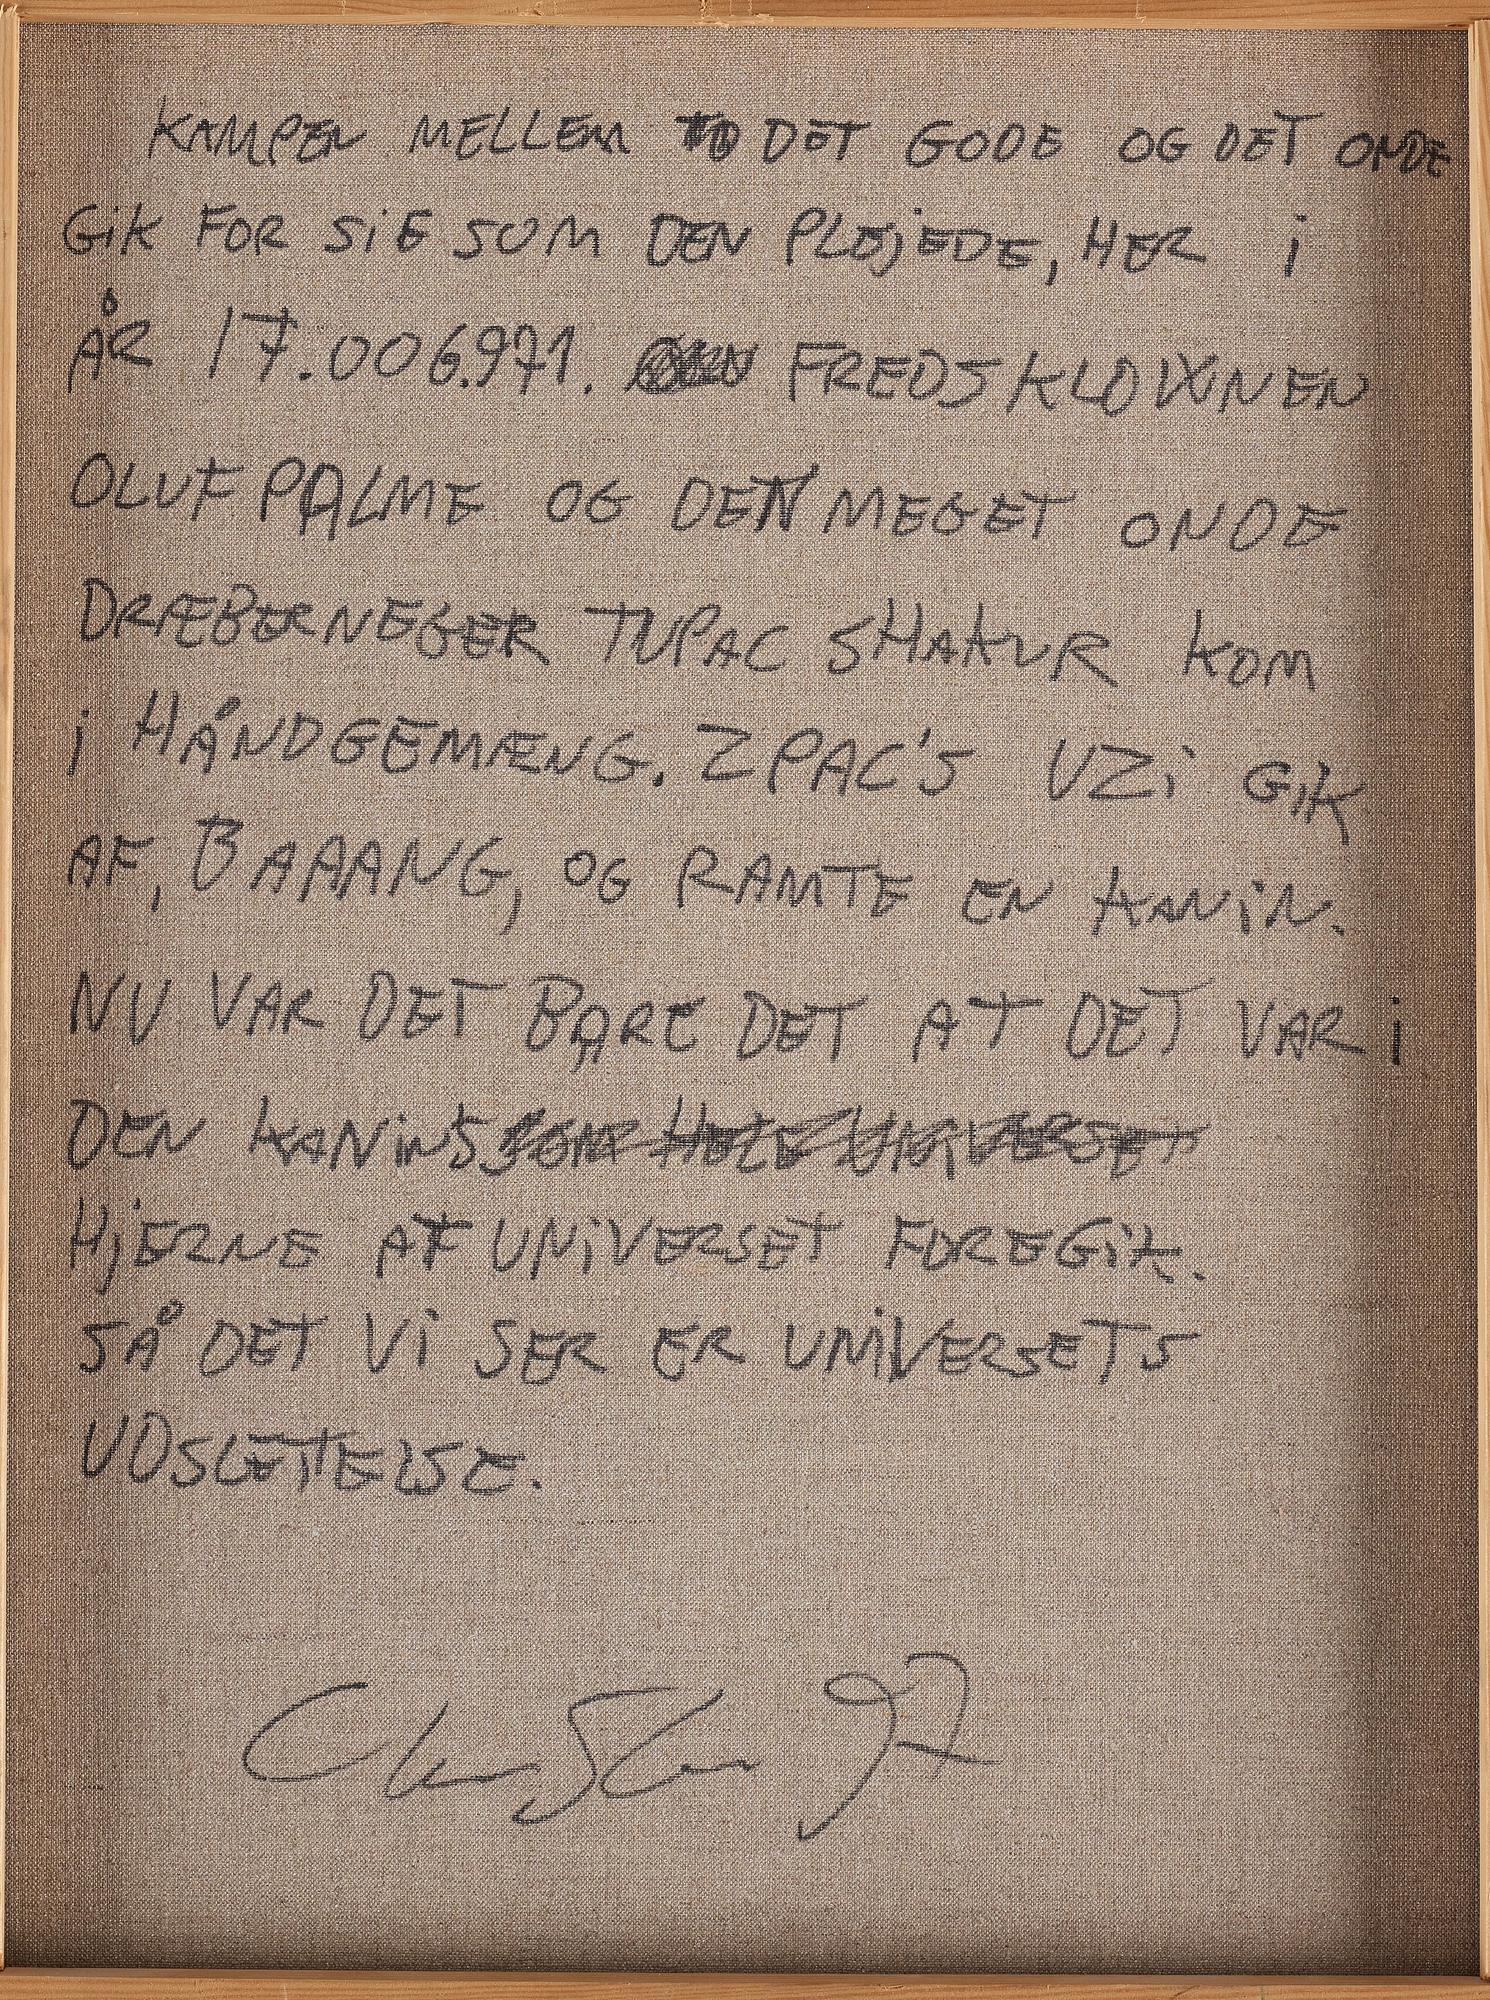 KAMPEN MELLEM DET GODE OG DET ONDE
GIK FOR SIG SOM DEN PLEJEDE, HER I
ÅR 17.006.971. FREDSKLOWNEN
OLUF PALME OG DEN MEGET ONDE
DRÆBERNEGER TUPAC SHAKUR KOM
I HÅNDGEMÆNG. 2PAC'S UZI GIK
AF, BAAANG, OG RAMTE EN KANIN.
NU VAR DET BARE DET AT DET VAR I
DEN KANINS
HJERNE AT UNIVERSET FOREGIK.
SÅ DET VI SER ER UNIVERSETS
UDSLETTELSE.
97